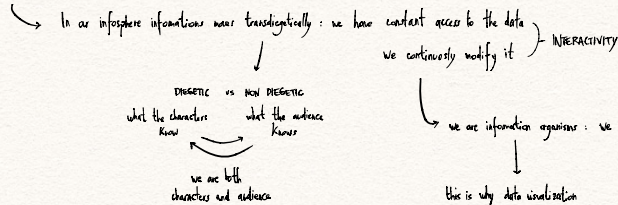 In as infosphere infomations maus transdiegetically : we have constant access to the data
we continuosly modify it
INTERACTIVITY
DIEGETIC vs NON DIEGETIC
what the characters know
what the audience knows
we are both
characters and audience
we are information organisms : we
this is why data visualization